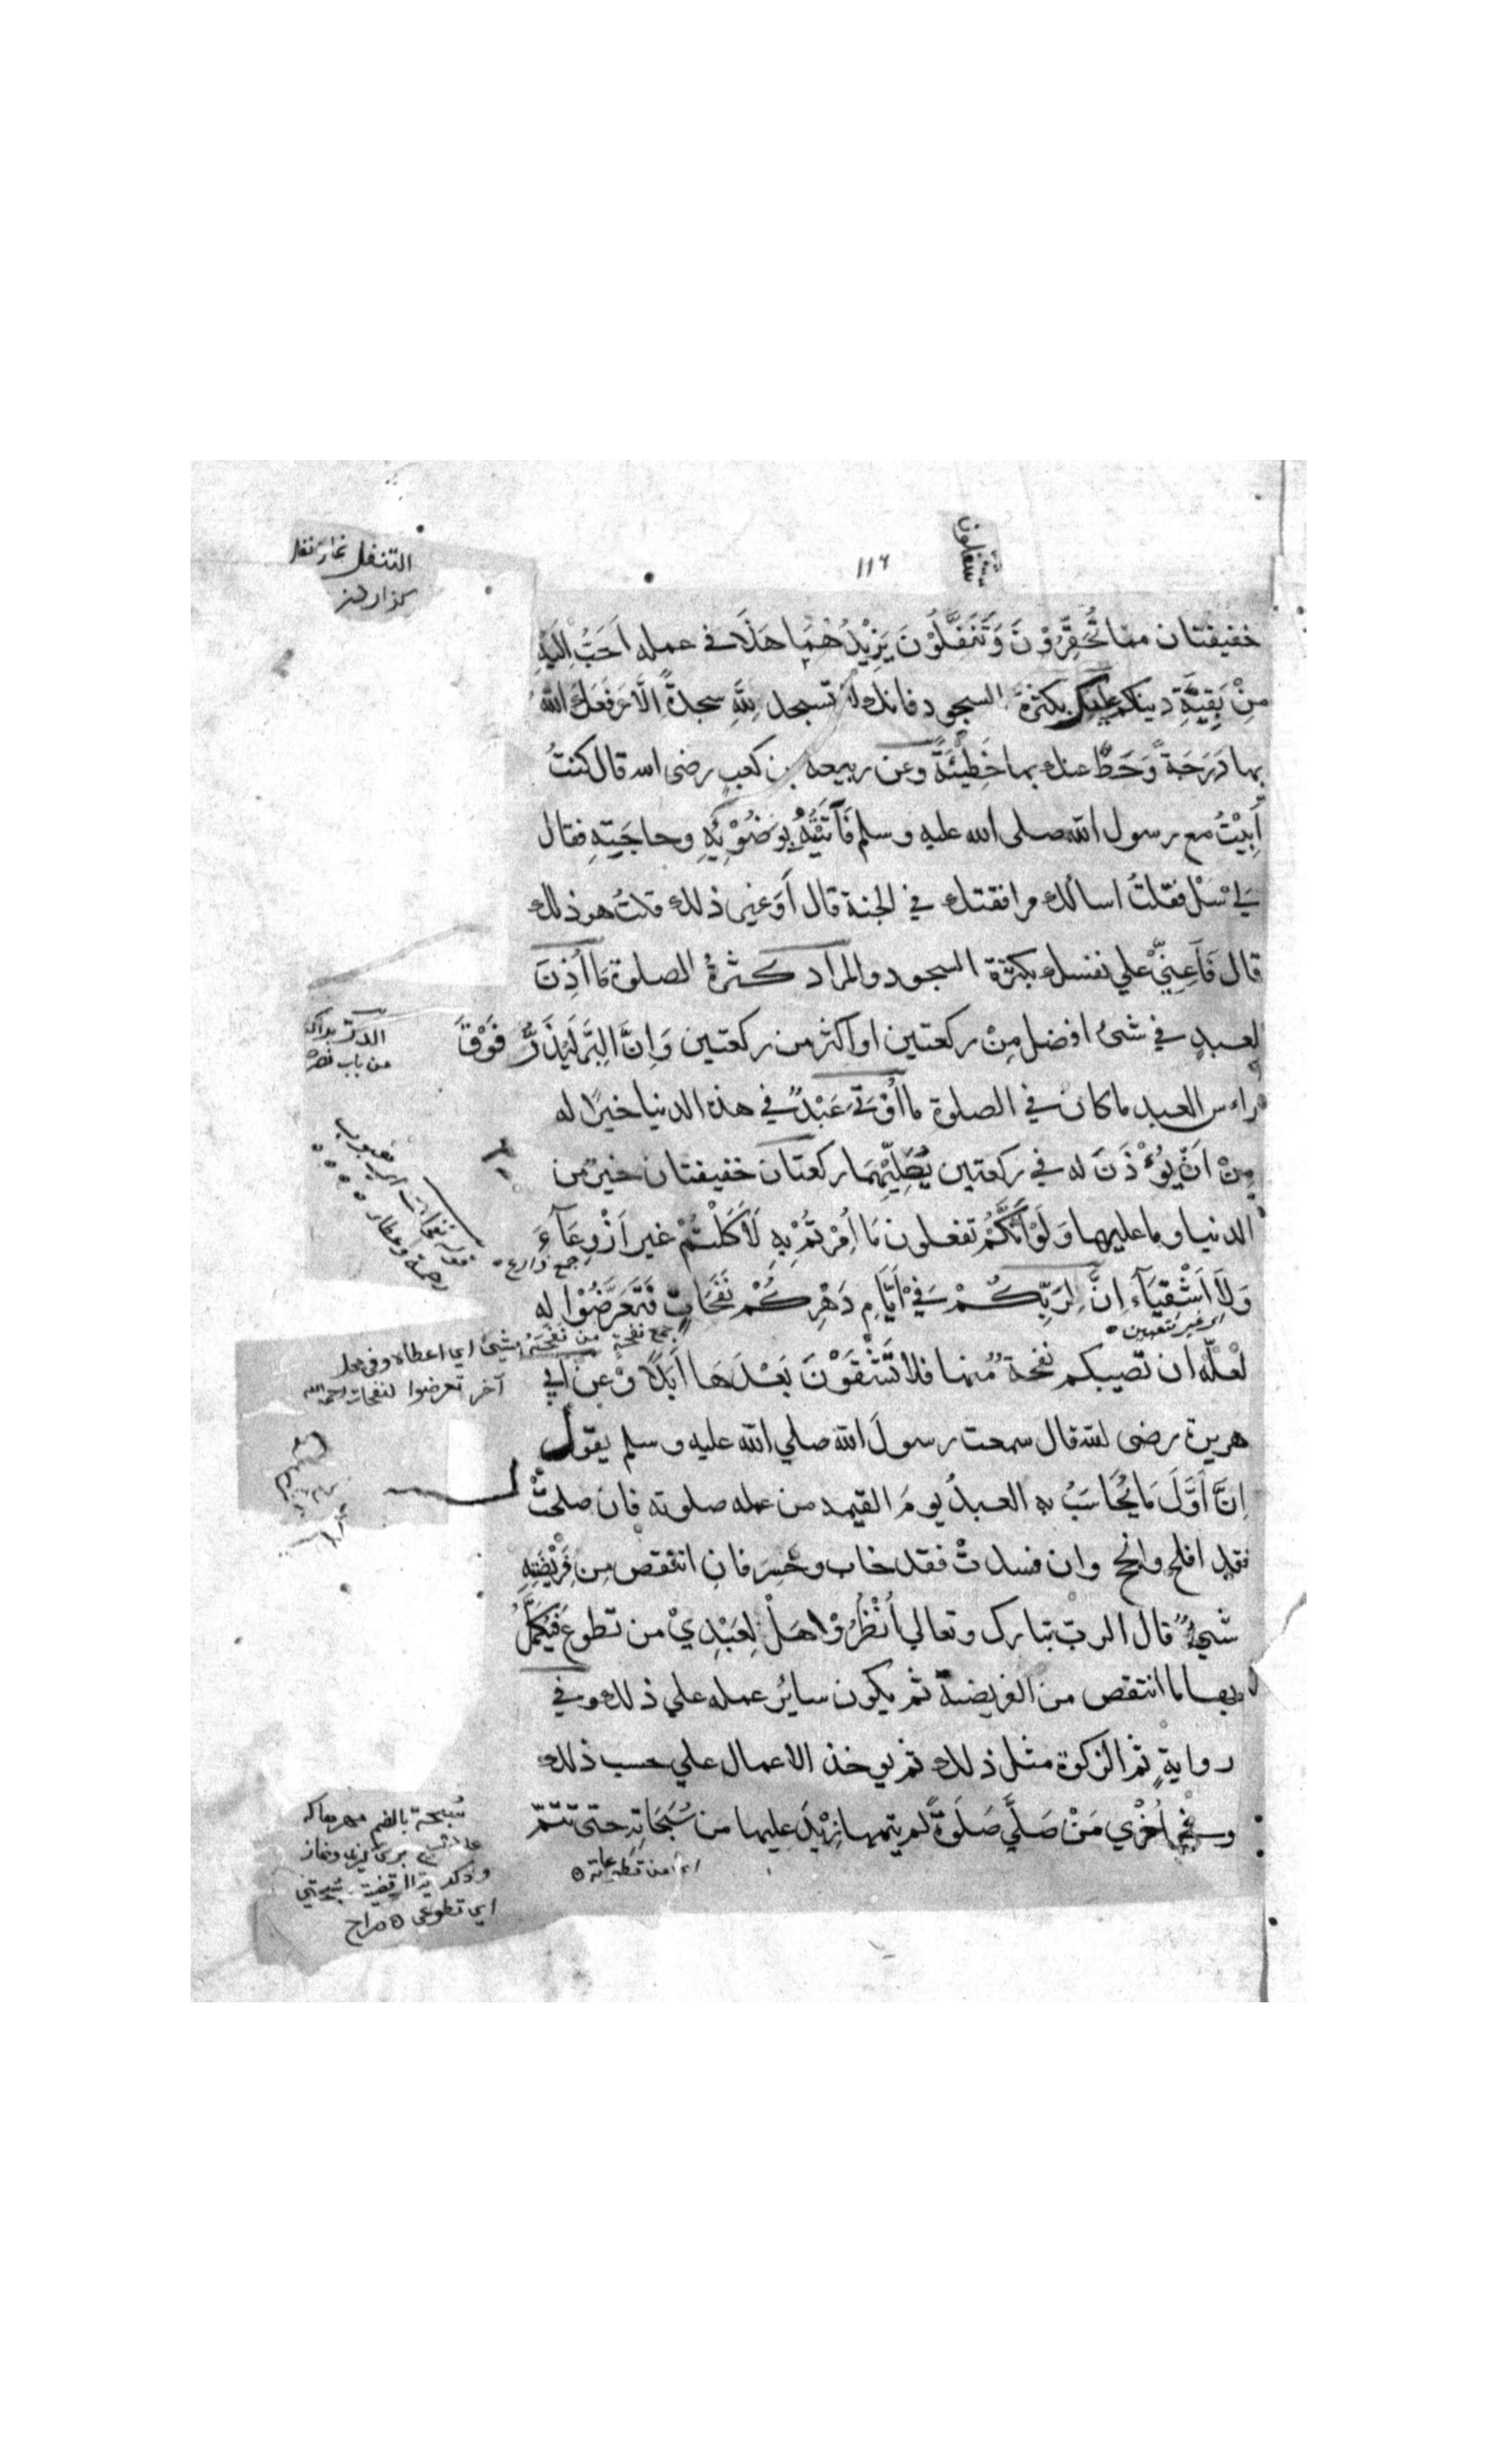 ١١٦
خفيفتان مما تُحَقِّرُوْنَ وَتَنَفَّلُوْنَ يَزِيْدُهُمَا هَذَا في عمله اَحَبُّ اِلَيْهِ
مِنْ بَقِيَّةِ دينكم عليك بكثرة السجود فانك لا تسجد لِلّٰهِ سجدةً اِلَّا رَفَعَكَ اللّٰهُ
بها دَرَجَةً وَحَطَّ عنك بها خَطِيْئَةً وعن ربيعه بن كعبٍ رضى الله قال كنتُ
أَبِيْتُ مع رسول الله صلى الله عليه وسلم فَآتَيْتُهُ بِوَضُوْئِهِ وحاجَتِهِ فقال
لِيْ سَلْ فقلتُ اسألك مرافقتك في الجنة قال أَوَغير ذلك قلتُ هو ذلك
قال فَاَعِنِّيْ علي نفسك بكثرة السجود والمراد كثرةُ الصلوة مَا اُذِنَ
لعبدٍ في شىءٍ افضل مِنْ ركعتين او اكثر من ركعتين وَاِنَّ البِرَّ لَيُذَرُّ فَوْقَ
راءس العبد ما كان في الصلوة ما اُوْتِيَ عَبْدٌ في هذه الدنيا خيرًا له
مِنْ اَنْ يُوْءْذَنَ له في ركعتين يُصَلِّيْهِمَا ركعتان خفيفتان خيرٌ من
الدنيا وما عليها وَلَوْ اَنَّكُمْ تفعلون مَا اُمِرْتُمْ بِهِ لَاَكَلْتُمْ غير اَذْرِعَآءَ
جمع ذارع
وَلَا اَشْقِيَآءَ اِنَّ لِرَبِّكُمْ فِيْ اَيَّامِ دَهْرِكُمْ نَفَحَاتٍ فَتَعَرَّضُوْا له
اى غير متعبين
جمع نفحةٍ من نَفَحَهُ بشيءٍ اي اعطاه وفي محل
آخر تعرضوا لنفحات رحمة الله
لَعَلَّه ان تصيبكم نفحةٌ منها فلا تَشْقَوْنَ بَعْدَهَا اَبَدًا وَعن اَبي
هريرة رضى الله قال سمعت رسولَ الله صلي الله عليه وسلم يقول
اِنَّ اَوَّلَ مَا يُحَاسَبُ به العبدُ يومَ القيمه من عمله صلوته فان صلحتْ
فقد افلح وانجح وان فسدتْ فقد خاب وخَسِرَ فانِ انتقص مِن فَرِيْضَتِهِ
شيءٌ قال الربّ تبارك وتعالي اُنْظُرُوْا هَلْ لِعَبْدِيْ من تطوع فَيُكَمَّلُ
بها ما انتقص من الفريضة ثم يكون سايرُ عمله علي ذلك وفي
روايةٍ ثم الزكوة مثل ذلك ثم يوخذ الاعمال علي حسب ذلك
وفي اُخْرٰي مَنْ صَلَّي صَلَوةً لم يتمها زِيْدَ عليها من سُبَحَاتِهِ حتى تَتِمَّ
اي من تطوعاته
التنفل نماز نفل
كزاردن
من باب نصر
سُبحة بالضم
اي تطوعي صراح